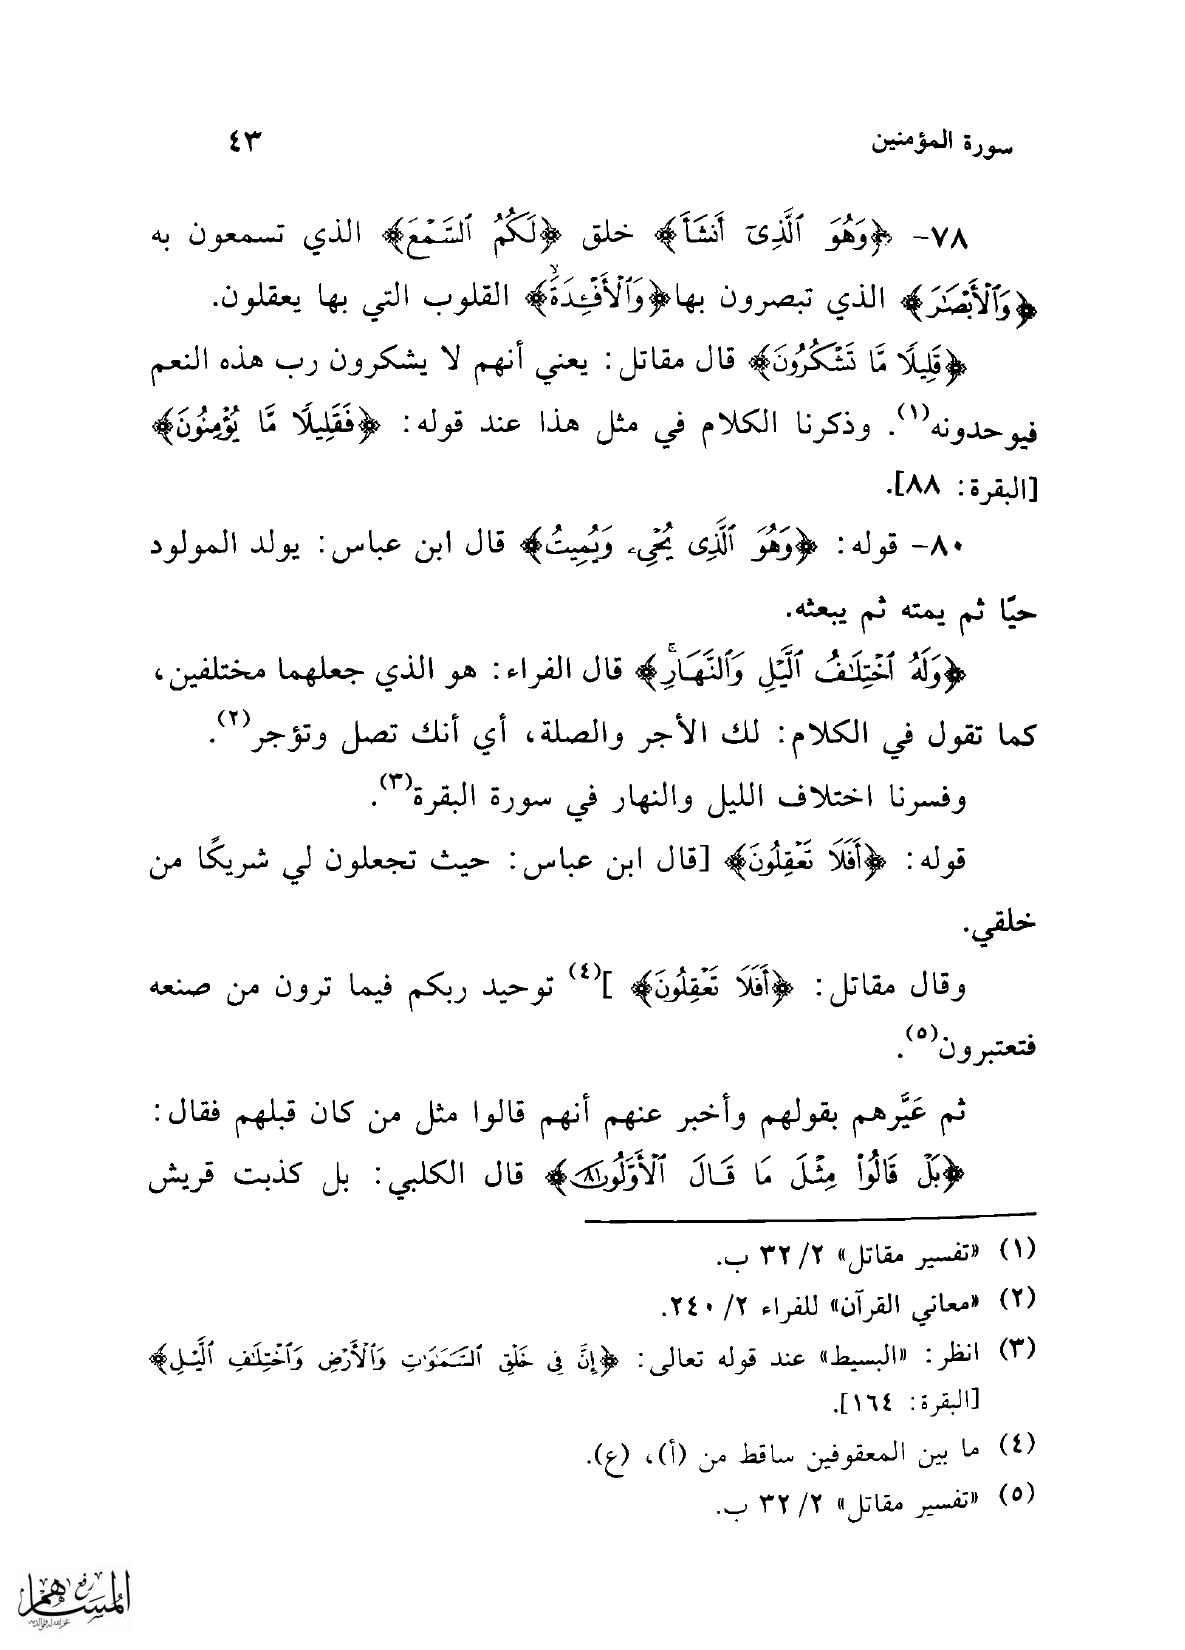 سورة المؤمنين ٤٣
٧٨- ﴿وَهُوَ ٱلَّذِىٓ أَنشَأَ﴾ خلق ﴿لَكُمُ ٱلسَّمْعَ﴾ الذي تسمعون به
﴿وَٱلْأَبْصَٰرَ﴾ الذي تبصرون بها﴿وَٱلْأَفْـِٔدَةَۙ﴾ القلوب التي بها يعقلون.
﴿قَلِيلًا مَّا تَشْكُرُونَ﴾ قال مقاتل: يعني أنهم لا يشكرون رب هذه النعم
فيوحدونه(١). وذكرنا الكلام في مثل هذا عند قوله: ﴿فَقَلِيلًا مَّا يُؤْمِنُونَ﴾
[البقرة: ٨٨].
٨٠- قوله: ﴿وَهُوَ ٱلَّذِى يُحْىِۦ وَيُمِيتُ﴾ قال ابن عباس: يولد المولود
حيًّا ثم يمته ثم يبعثه.
﴿وَلَهُ ٱخْتِلَٰفُ ٱلَّيْلِ وَٱلنَّهَارِۚ﴾ قال الفراء: هو الذي جعلهما مختلفين،
كما تقول في الكلام: لك الأجر والصلة، أي أنك تصل وتؤجر(٢).
وفسرنا اختلاف الليل والنهار في سورة البقرة(٣).
قوله: ﴿أَفَلَا تَعْقِلُونَ﴾ [قال ابن عباس: حيث تجعلون لي شريكًا من
خلقي.
وقال مقاتل: ﴿أَفَلَا تَعْقِلُونَ﴾ ](٤) توحيد ربكم فيما ترون من صنعه
فتعتبرون(٥).
ثم عَيَّرهم بقولهم وأخبر عنهم أنهم قالوا مثل من كان قبلهم فقال:
﴿بَلْ قَالُوا۟ مِثْلَ مَا قَالَ ٱلْأَوَّلُونَ ٨١﴾ قال الكلبي: بل كذبت قريش
(١) «تفسير مقاتل» ٢/ ٣٢ ب.
(٢) «معاني القرآن» للفراء ٢/ ٢٤٠.
(٣) انظر: «البسيط» عند قوله تعالى: ﴿إِنَّ فِى خَلْقِ ٱلسَّمَٰوَٰتِ وَٱلْأَرْضِ وَٱخْتِلَٰفِ ٱلَّيْلِ﴾
[البقرة: ١٦٤].
(٤) ما بين المعقوفين ساقط من (أ)، (ع).
(٥) «تفسير مقاتل» ٢/ ٣٢ ب.